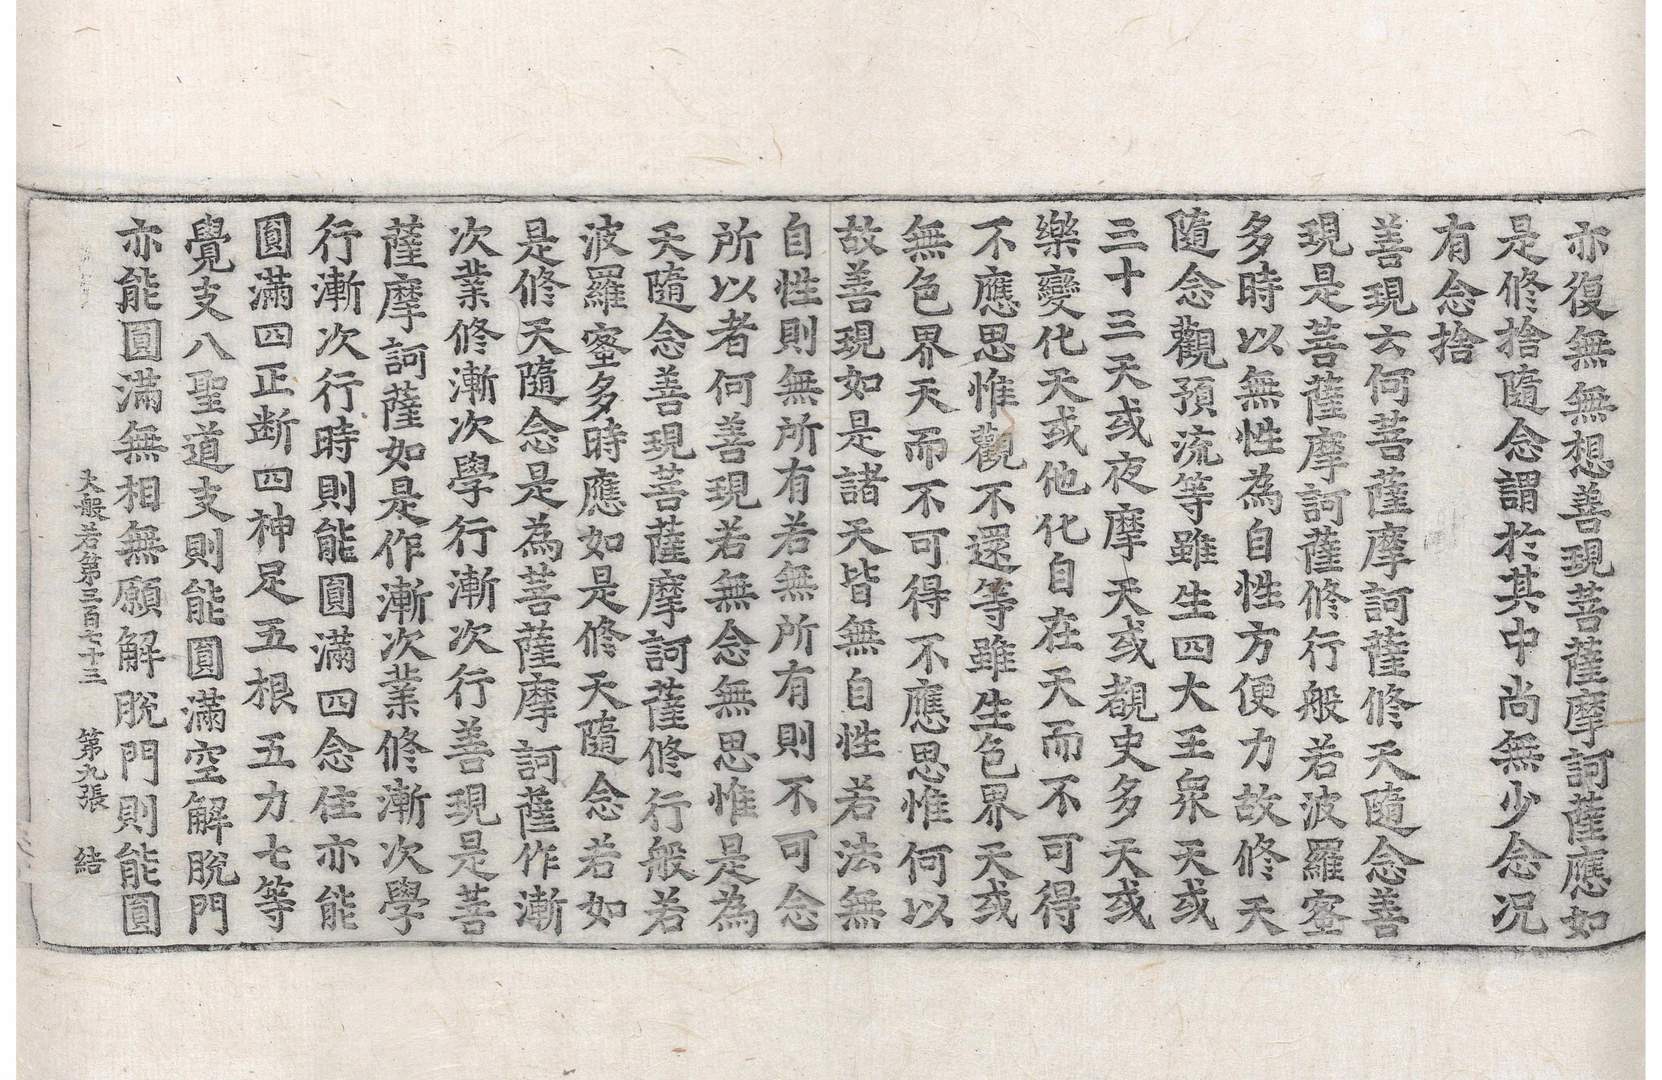 亦復無無想善現菩薩摩訶薩應如
是修捨隨念謂於其中尚無少念况
有念捨
善現云何菩薩摩訶薩修天隨念善
現是菩薩摩訶薩修行般若波羅蜜
多時以無性為自性方便力故修天
隨念觀預流等雖生四大王衆天或
三十三天或夜摩天或覩史多天或
樂變化天或他化自在天而不可得
不應思惟觀不還等雖生色界天或
無色界天而不可得不應思惟何以
故善現如是諸天皆無自性若法無
自性則無所有若無所有則不可念
所以者何善現若無念無思惟是為
天隨念善現菩薩摩訶薩修行般若
波羅蜜多時應如是修天隨念若如
是修天隨念是為菩薩摩訶薩作漸
次業修漸次學行漸次行善現是菩
薩摩訶薩如是作漸次業修漸次學
行漸次行時則能圓滿四念住亦能
圓滿四正断四神足五根五力七等
覺支八聖道支則能圓滿空解脫門
亦能圓滿無相無願解脫門則能圓
大般若第三百七十三 第九張 結